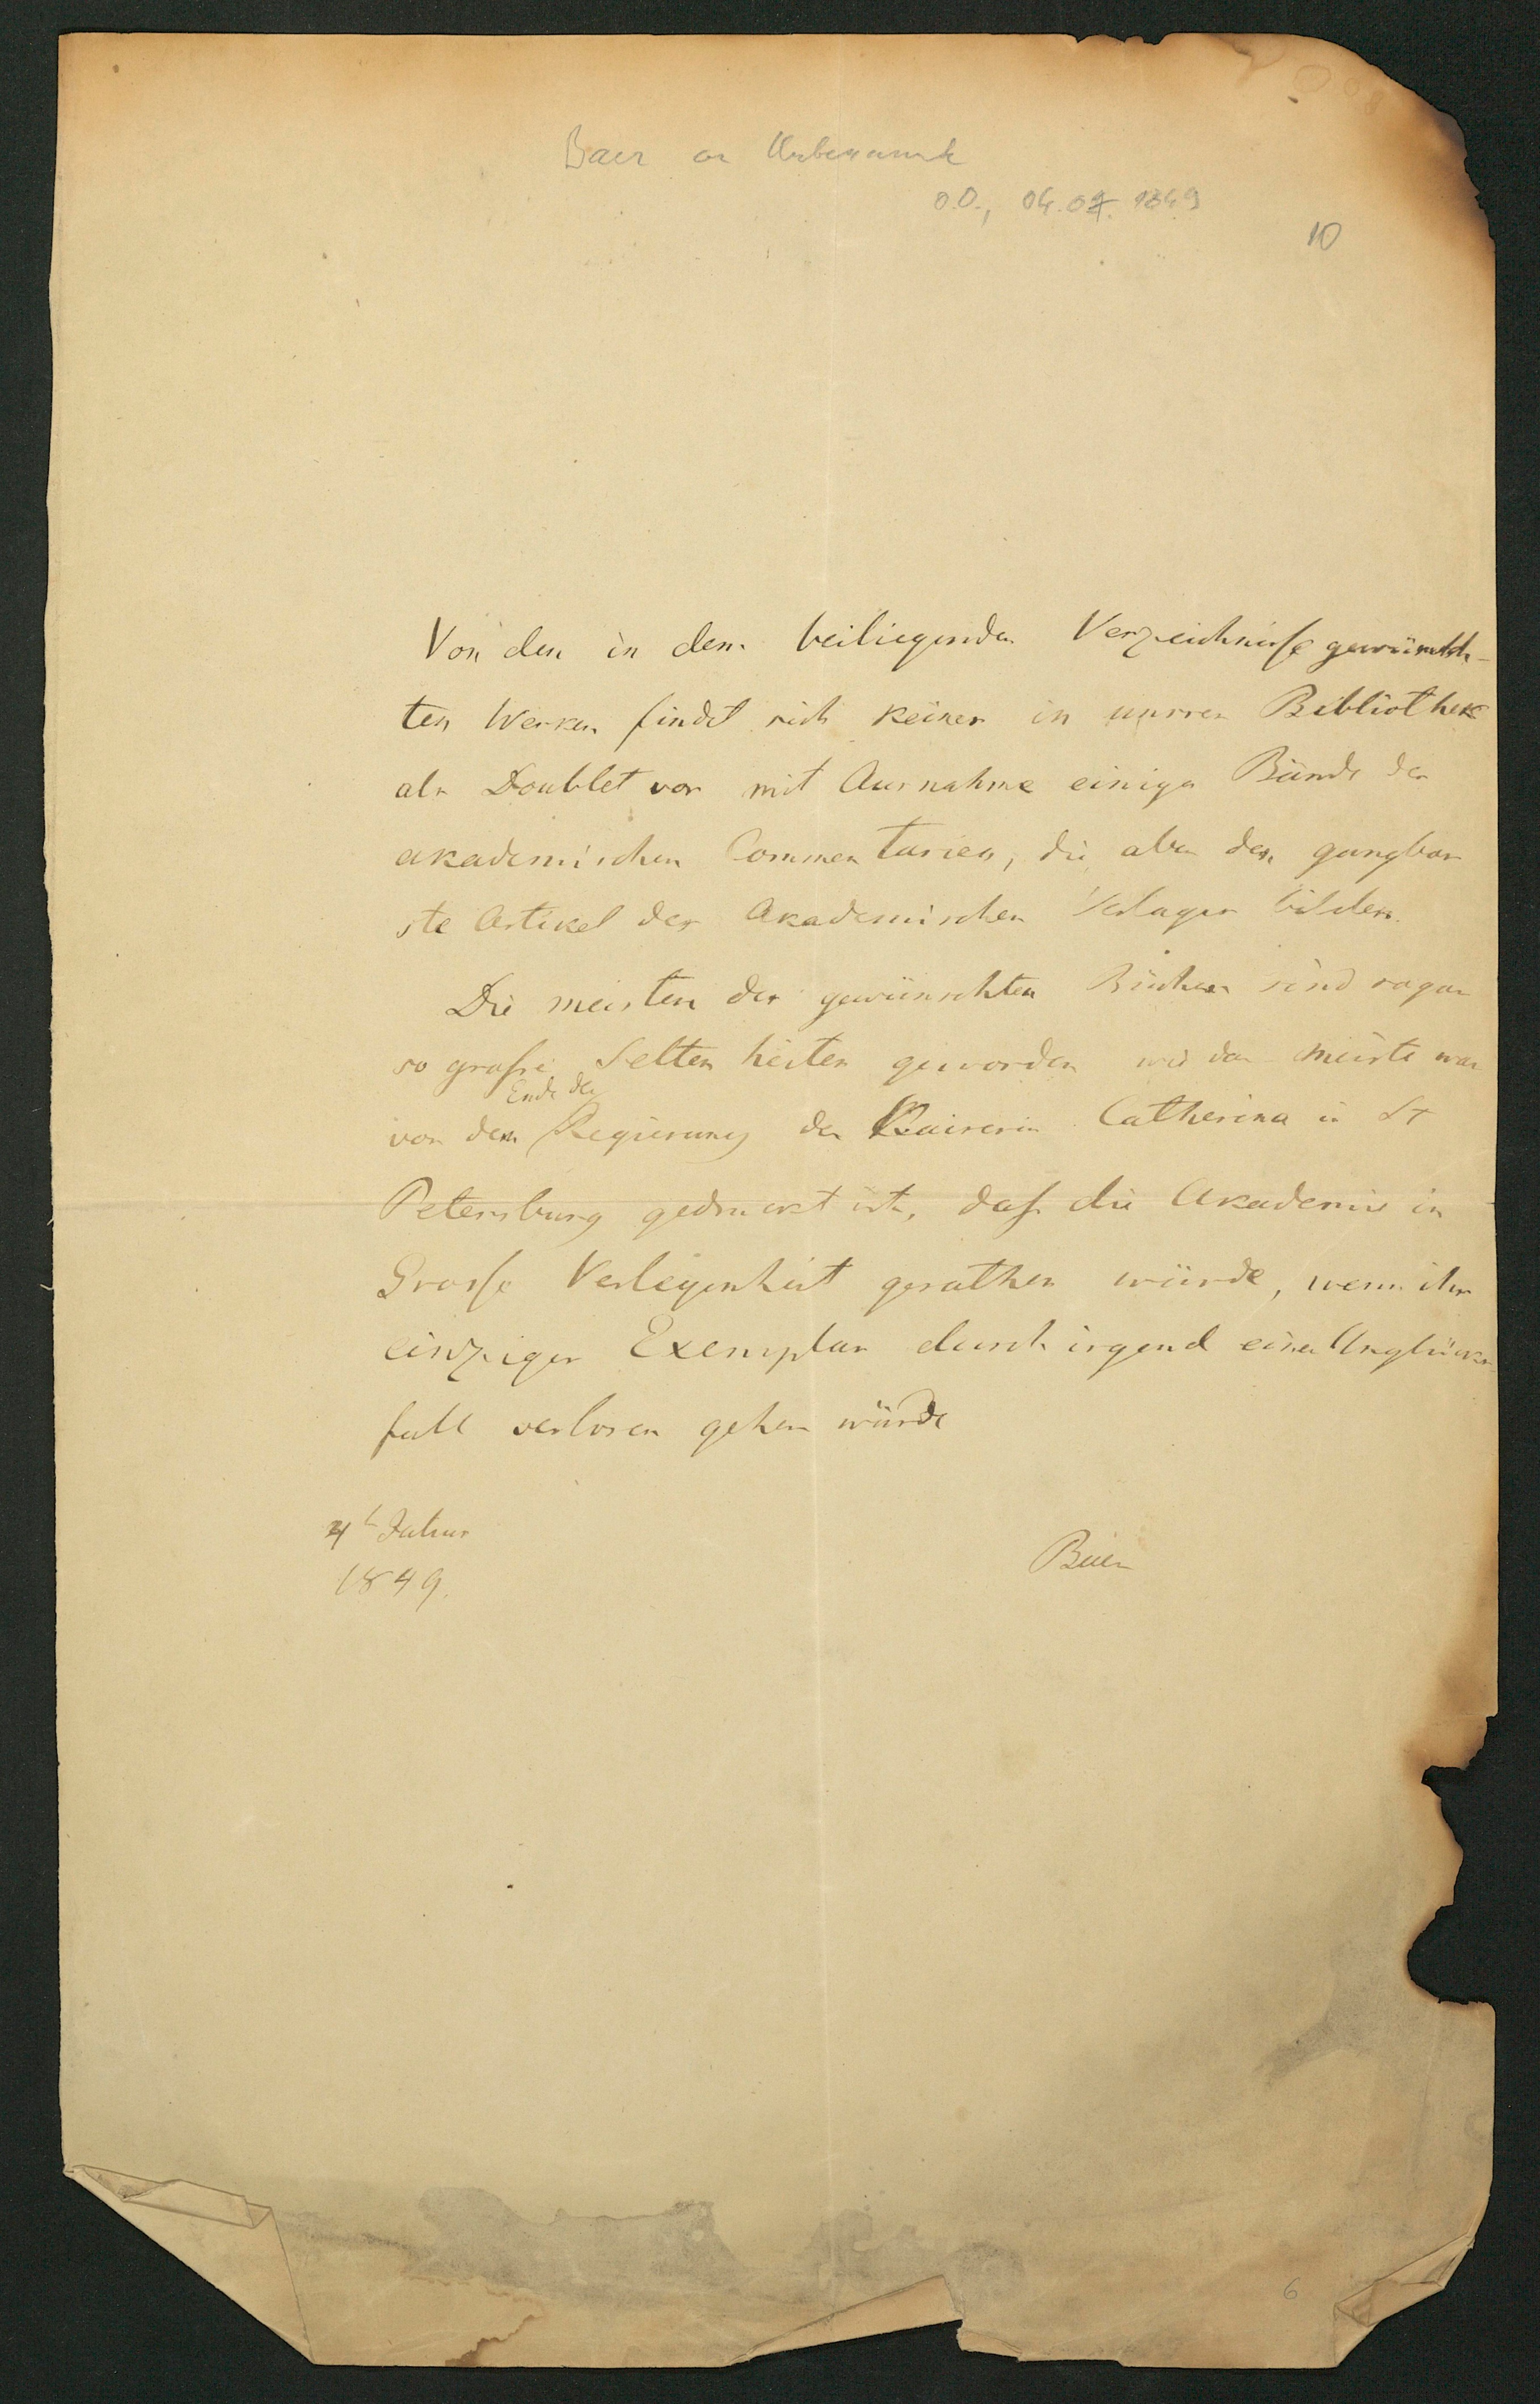 Baer an Unbekannt
o.O., 04.07.1849
10
Von den in dem beiliegenden Verzeichnisse gewünsch-
ten Werken findet sich keines in unsrer Bibliothek
als Doublet vor mit Ausnahme einiger Bände der
akademischen Commentarien, die aber den gangbar
ste Artikel des Akademischen Verlages bilden.
Die meisten der gewünschten Bücher sind sogar
so große Seltenheiten geworden wie das meiste was
vor dem Ende der Regierung der Kaiserin Catherina in St
Petersburg gedruckt ist, daß die Akademie in
Grosse Verlegenheit gerathen würde, wenn ihr
einziges Exemplar durch irgend einen Unglücks-
fall verloren gehen würde
4
1849.
Baer
6